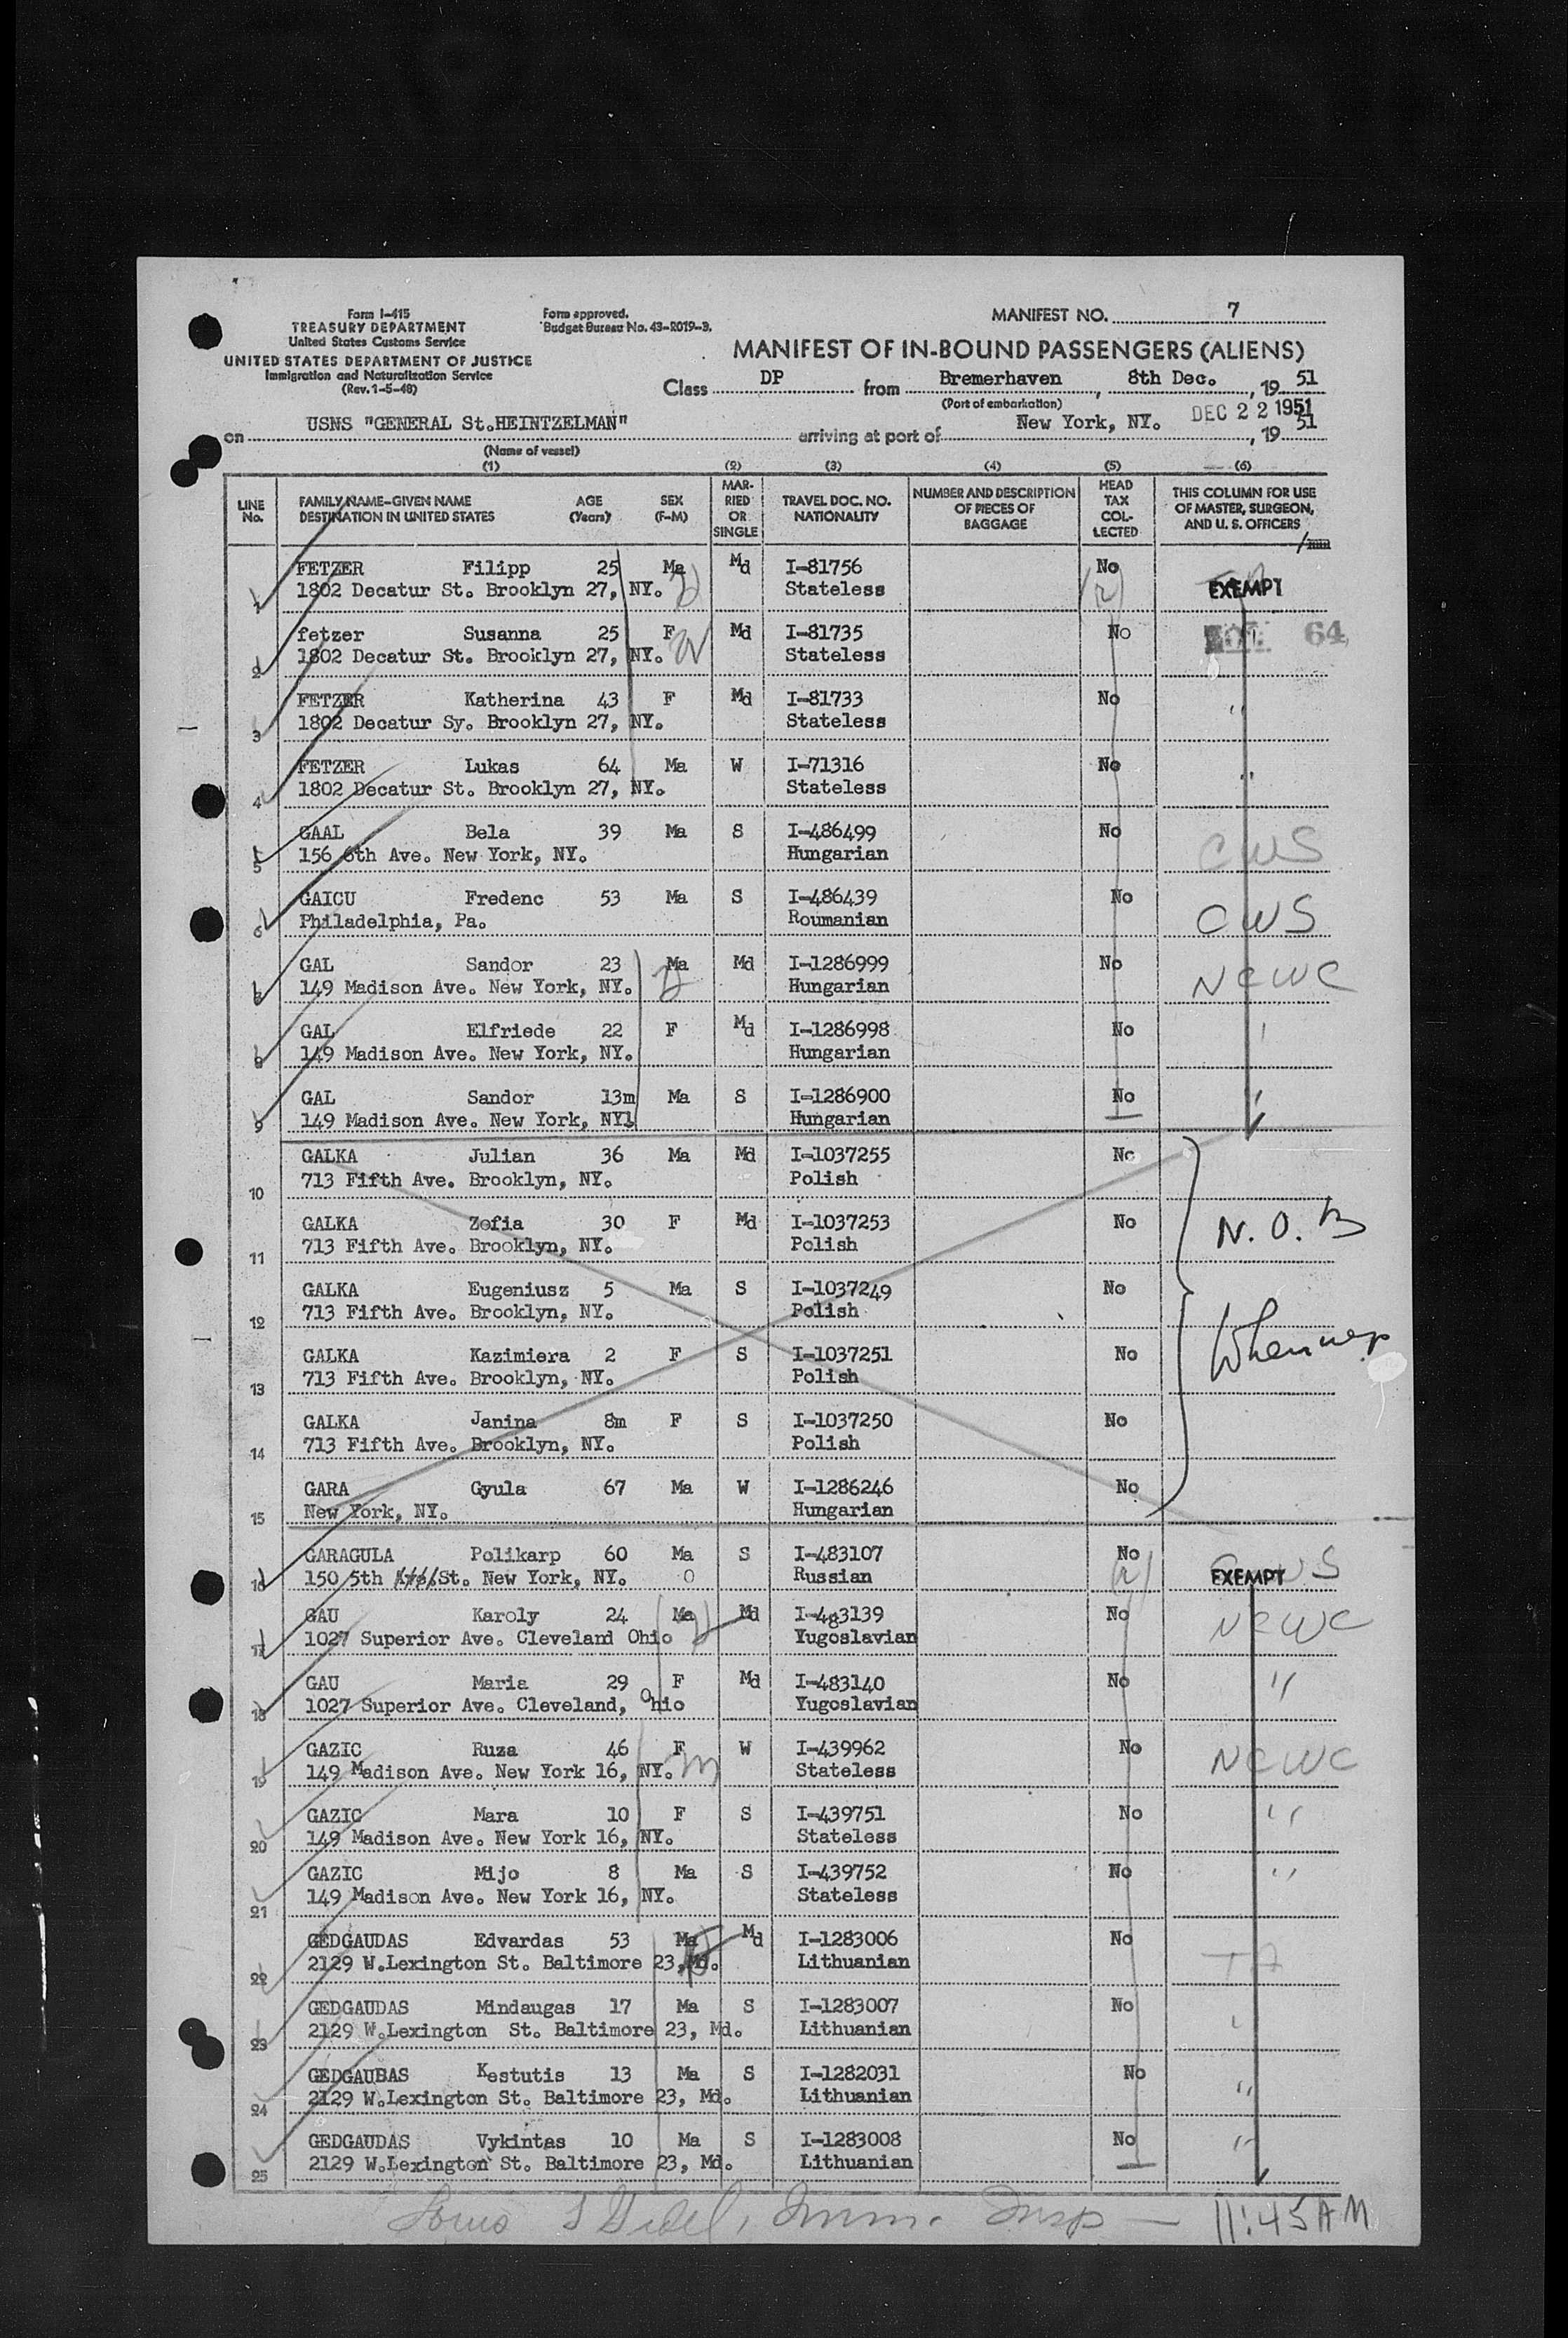 Form I-415
TREASURY DEPARTMENT
United States Customs Service
UNITED STATES DEPARTMENT OF JUSTICE
Immigration and Naturalization Service
(Rev. 1-5-48)
Form approved.
Budget Bureau No. 43-R019-3.
MANIFEST NO. 7
MANIFEST OF IN-BOUND PASSENGERS (ALIENS)
Class DP from Bremerhaven, 8th Dec., 19 51
(Port of embarkation)
on USNS "GENERAL St.HEINTZELMAN" arriving at port of New York, NY. DEC 22 1951, 19 51
(Name of vessel)
(1) (2) (3) (4) (5) (6)
LINE No. FAMILY NAME-GIVEN NAME DESTINATION IN UNITED STATES AGE (Years) SEX (F-M) MARRIED OR SINGLE TRAVEL DOC. NO. NATIONALITY NUMBER AND DESCRIPTION OF PIECES OF BAGGAGE HEAD TAX COLLECTED THIS COLUMN FOR USE OF MASTER, SURGEON, AND U. S. OFFICERS
FETZER Filipp 25 Ma Md I-81756 No
1 1802 Decatur St. Brooklyn 27, NY. Stateless EXEMPT
fetzer Susanna 25 F Md I-81735 No 64
2 1802 Decatur St. Brooklyn 27, NY. Stateless
FETZER Katherina 43 F Md I-81733 No
3 1802 Decatur Sy. Brooklyn 27, NY. Stateless "
FETZER Lukas 64 Ma W I-71316 No
4 1802 Decatur St. Brooklyn 27, NY. Stateless "
GAAL Bela 39 Ma S I-486499 No
5 156 6th Ave. New York, NY. Hungarian CWS
GAICU Fredenc 53 Ma S I-486439 No
6 Philadelphia, Pa. Roumanian CWS
GAL Sandor 23 Ma Md I-1286999 No
149 Madison Ave. New York, NY. Hungarian NCWC
GAL Elfriede 22 F Md I-1286998 No
8 149 Madison Ave. New York, NY. Hungarian
GAL Sandor 13m Ma S I-1286900 No
9 149 Madison Ave. New York, NY1 Hungarian "
GALKA Julian 36 Ma Md I-1037255 No
10 713 Fifth Ave. Brooklyn, NY. Polish
GALKA Zofia 30 F Md I-1037253 No N.O.B
11 713 Fifth Ave. Brooklyn, NY. Polish
GALKA Eugeniusz 5 Ma S I-1037249 No
12 713 Fifth Ave. Brooklyn, NY. Polish
GALKA Kazimiera 2 F S I-1037251 No
13 713 Fifth Ave. Brooklyn, NY. Polish
GALKA Janina 8m F S I-1037250 No
14 713 Fifth Ave. Brooklyn, NY. Polish
GARA Gyula 67 Ma W I-1286246 No
15 New York, NY. Hungarian
GARAGULA Polikarp 60 Ma S I-483107 No
16 150 5th St. New York, NY. Russian EXEMPT CWS
GAU Karoly 24 Ma Md I-483139 No
17 1027 Superior Ave. Cleveland Ohio Yugoslavian NCWC
GAU Maria 29 F Md I-483140 No
18 1027 Superior Ave. Cleveland, Ohio Yugoslavian "
GAZIC Ruza 46 F W I-439962 No
19 149 Madison Ave. New York 16, NY. Stateless NCWC
GAZIC Mara 10 F S I-439751 No
20 149 Madison Ave. New York 16, NY. Stateless "
GAZIC Mijo 8 Ma S I-439752 No
21 149 Madison Ave. New York 16, NY. Stateless "
GEDGAUDAS Edvardas 53 Ma Md I-1283006 No
22 2129 W.Lexington St. Baltimore 23, Md. Lithuanian
GEDGAUDAS Mindaugas 17 Ma S I-1283007 No
23 2129 W.Lexington St. Baltimore 23, Md. Lithuanian
GEDGAUBAS Kestutis 13 Ma S I-1282031 No
24 2129 W.Lexington St. Baltimore 23, Md. Lithuanian "
GEDGAUDAS Vykintas 10 Ma S I-1283008 No
25 2129 W.Lexington St. Baltimore 23, Md. Lithuanian "
Imm. Insp — 11:45 AM